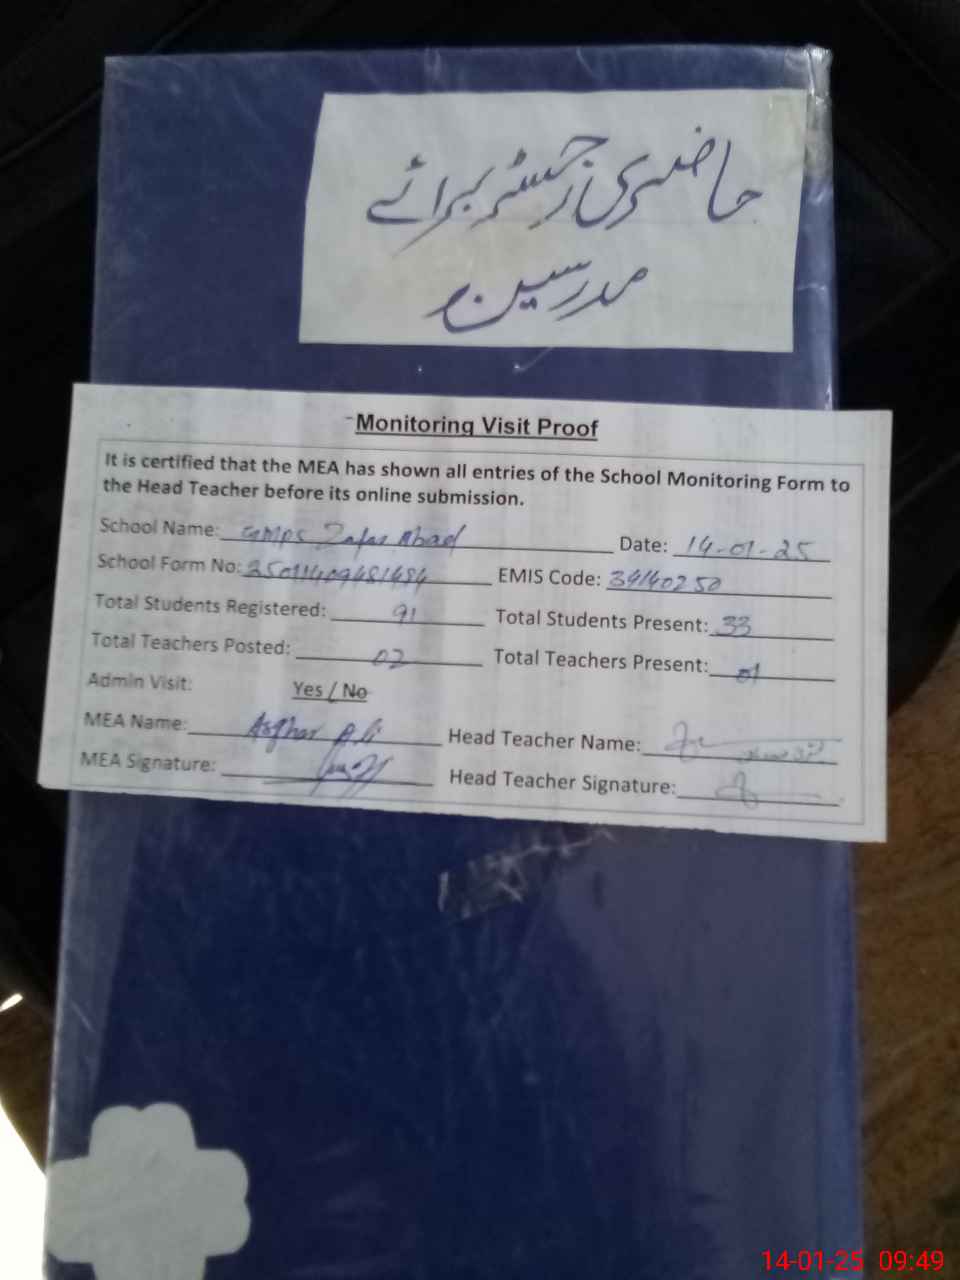 حاضری رجسٹر برائے
مدرسین
Monitoring Visit Proof
It is certified that the MEA has shown all entries of the School Monitoring Form to
the Head Teacher before its online submission.
School Name: GMPS Zafar Abad Date: 14-01-25
School Form No: 25011409481484 EMIS Code: 34140250
Total Students Registered: 91 Total Students Present: 33
Total Teachers Posted: 02 Total Teachers Present: 01
Admin Visit: Yes / No
MEA Name: Asghar Ali Head Teacher Name:
MEA Signature: Head Teacher Signature:
14-01-25 09:49